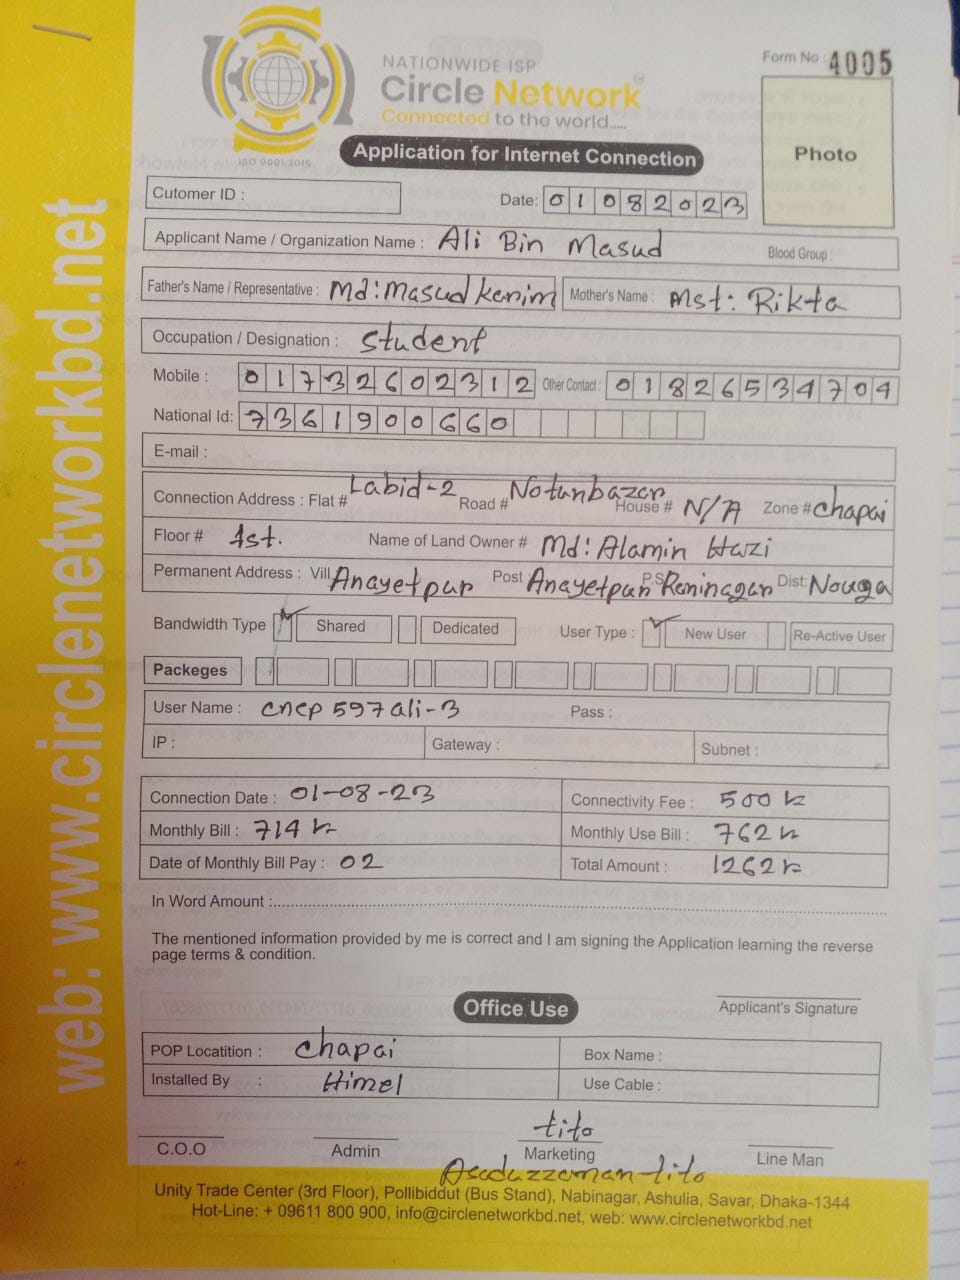 NATIONWIDE ISP
Circle Network
Connected to the world.....
ISO 9001:2015
Form No : 4005
Photo
Application for Internet Connection
Cutomer ID :
Date: 01082023
Applicant Name / Organization Name : Ali Bin Masud Blood Group :
Father's Name / Representative : Md: Masud Karim Mother's Name : Mst: Rikta
Occupation / Designation : Student
Mobile : 01732602312 Other Contact : 01826534704
National Id: 7361900660
E-mail :
Connection Address : Flat # Labid-2 Road # Notunbazar House # N/A Zone # Chapai
Floor # 1st. Name of Land Owner # Md: Alamin Hazi
Permanent Address : Vill Anayetpur Post : Anayetpur P.S Raninagar Dist: Nouga
Bandwidth Type Shared Dedicated User Type : New User Re-Active User
Packeges
User Name : cnep597ali-3 Pass :
IP : Gateway : Subnet :
Connection Date : 01-08-23 Connectivity Fee : 500
Monthly Bill : 714 Monthly Use Bill : 762
Date of Monthly Bill Pay : 02 Total Amount : 1262
In Word Amount :
The mentioned information provided by me is correct and I am signing the Application learning the reverse
page terms & condition.
Applicant's Signature
Office Use
POP Locatition : Chapai Box Name :
Installed By : Himel Use Cable :
tito
C.O.O Admin Marketing Line Man
Asaduzzaman tito
Unity Trade Center (3rd Floor), Pollibiddut (Bus Stand), Nabinagar, Ashulia, Savar, Dhaka-1344
Hot-Line: + 09611 800 900, info@circlenetworkbd.net, web: www.circlenetworkbd.net
web: www.circlenetworkbd.net